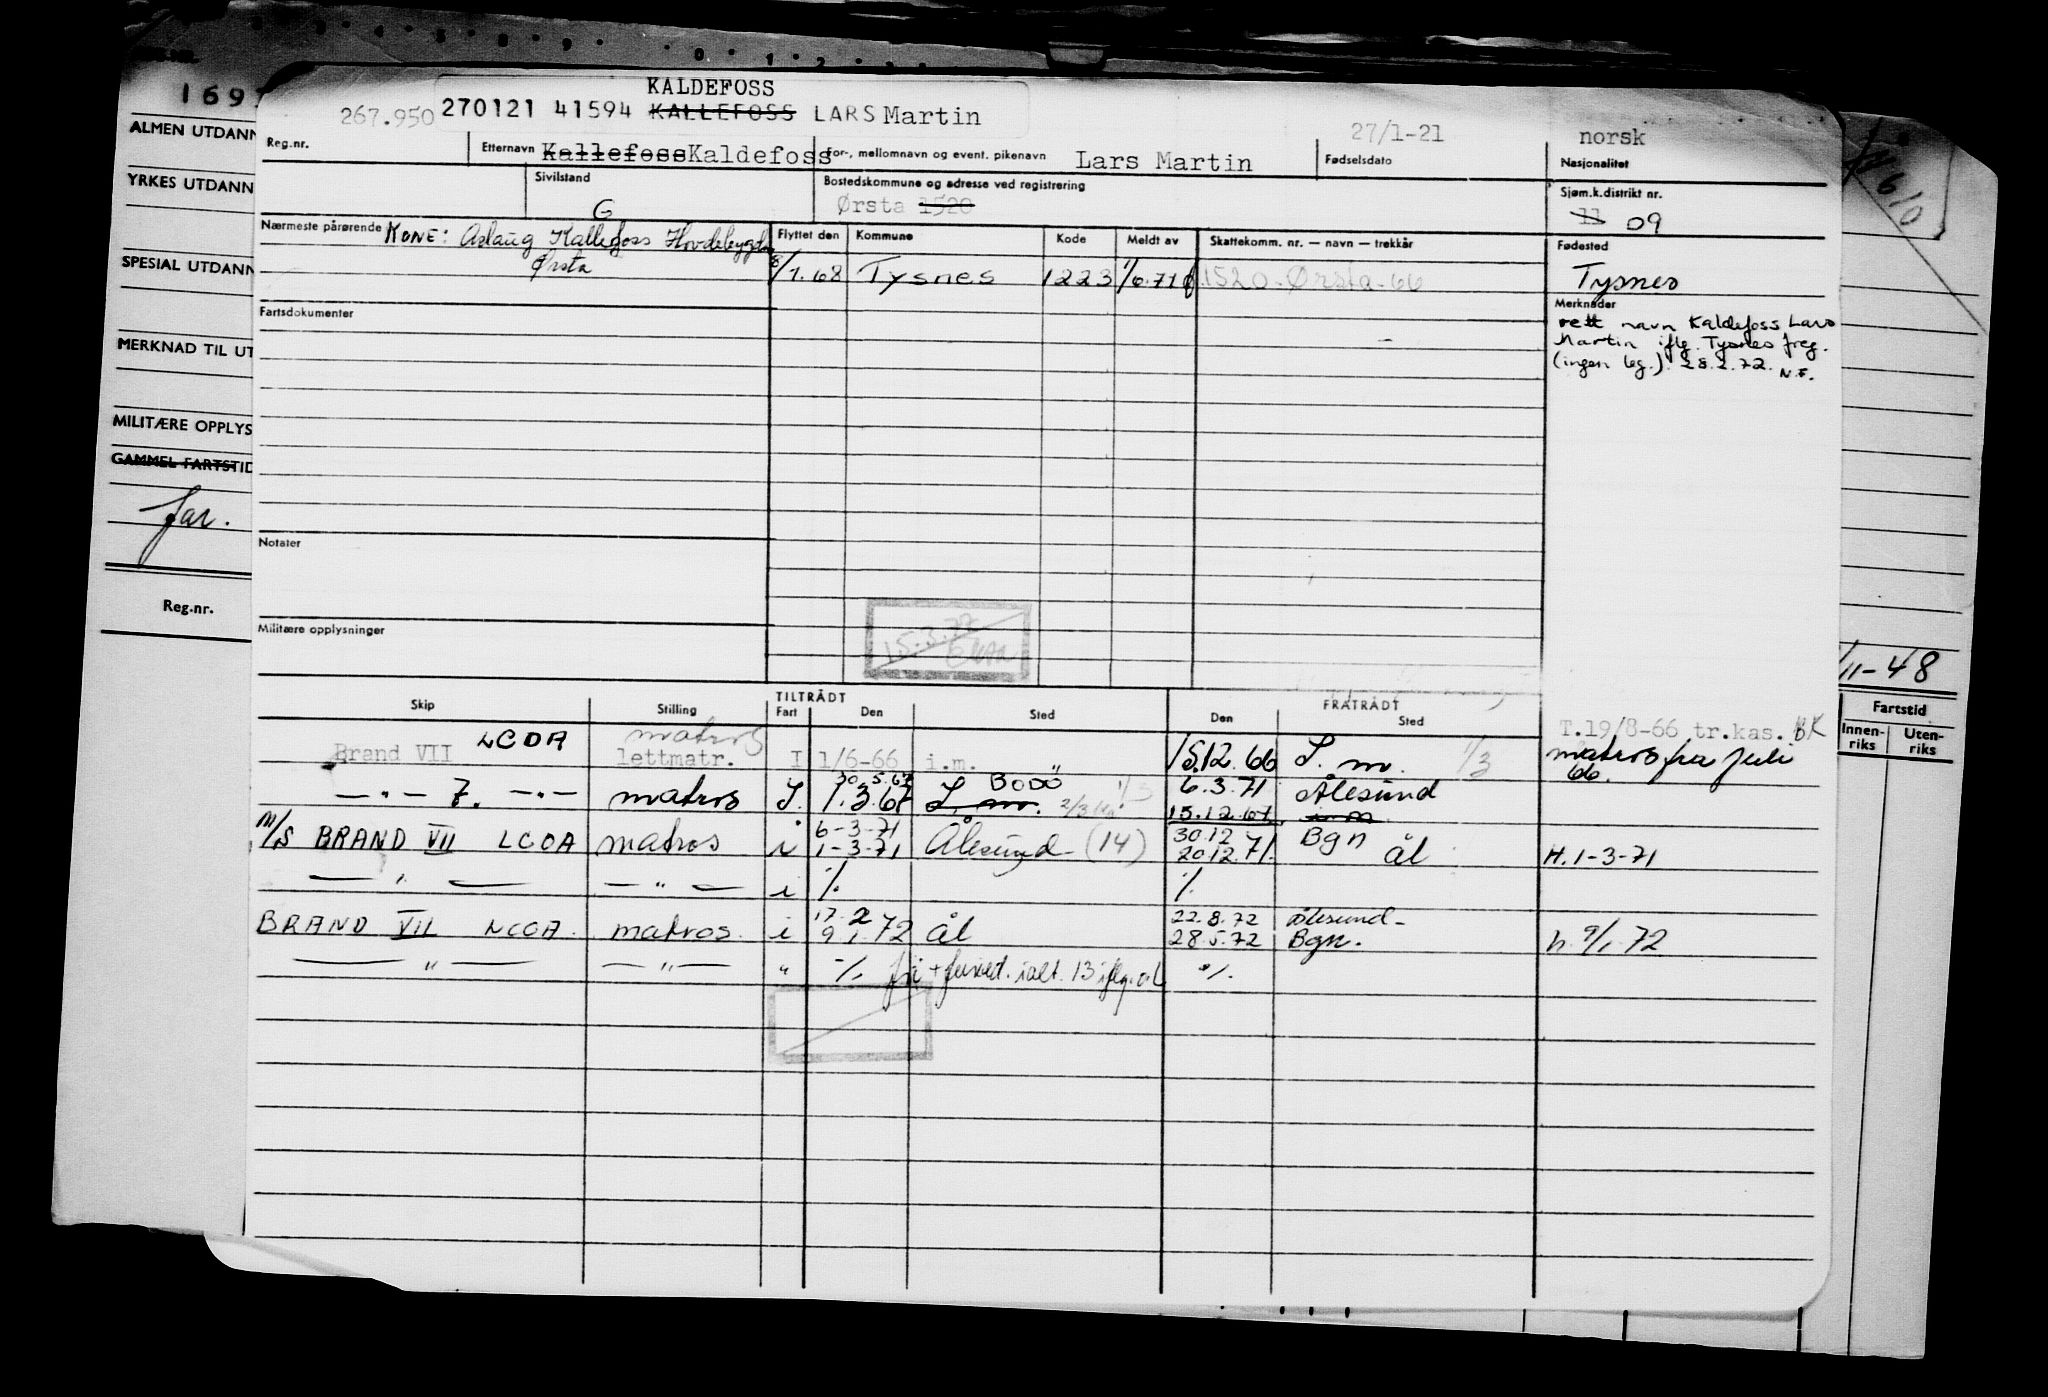 169
ALMEN UTDANN
YRKES UTDANN
SPESIAL UTDANN
MERKNAD TIL UT
MILITÆRE OPPLYS
GAMMEL FARTSTID
far.
Reg.nr.
KALDEFOSS
267.950 270121 41594 KALLEFOSS LARS Martin
27/1-21 norsk
Reg.nr. Etternavn Kallefoss Kaldefoss For-, mellomnavn og event. pikenavn Lars Martin Fødselsdato Nasjonalitet
Sivilstand Bostedskommune og adresse ved registrering Sjøm.k.distrikt nr.
G Ørsta 1520 11 09
Nærmeste pårørende KONE: Aslaug Kallefoss Hovdebygda Flyttet den Kommune Kode Meldt av Skattekomm. nr. — navn — trekkår Fødested
Ørsta 8/1.68 Tysnes 1223 1/6.71 1520-Ørsta-66 Tysnes
Fartsdokumenter Merknader
rett navn Kaldefoss Lars
Martin iflg. Tysnes freg.
(ingen leg.). 28.2.72. N.F.
Notater
Militære opplysninger
15.3.72
11-48
TILTRÅDT FRATRÅDT
Skip Stilling Fart Den Sted Den Sted
Fartstid
Innen-riks Uten-riks
T.19/8-66 tr.kas. BK
LCOA matros
Brand VII lettmatr. I 1/6-66 i.m. 15.12.66 I. m. 1/3 matros fra juli
66.
30.5.67 BODÖ 6.3.71 Ålesund
— " — 7. — " — matros I. 1.3.67 I. m. 15.12.67 i.m
6-3-71 30.12 Bgn
M/S BRAND VII LCOA matros i 1-3-71 Ålesund (14) 20.12.71. ål H. 1-3-71
— " — — " — i %. %.
17.2 22.8.72 Ålesund-
BRAND VII LCOA. matros. i 9/1.72 ål 28.5.72 Bgn. h. 9/1.72
— " — — " — " %. ialt. 13 iflg. ål %.